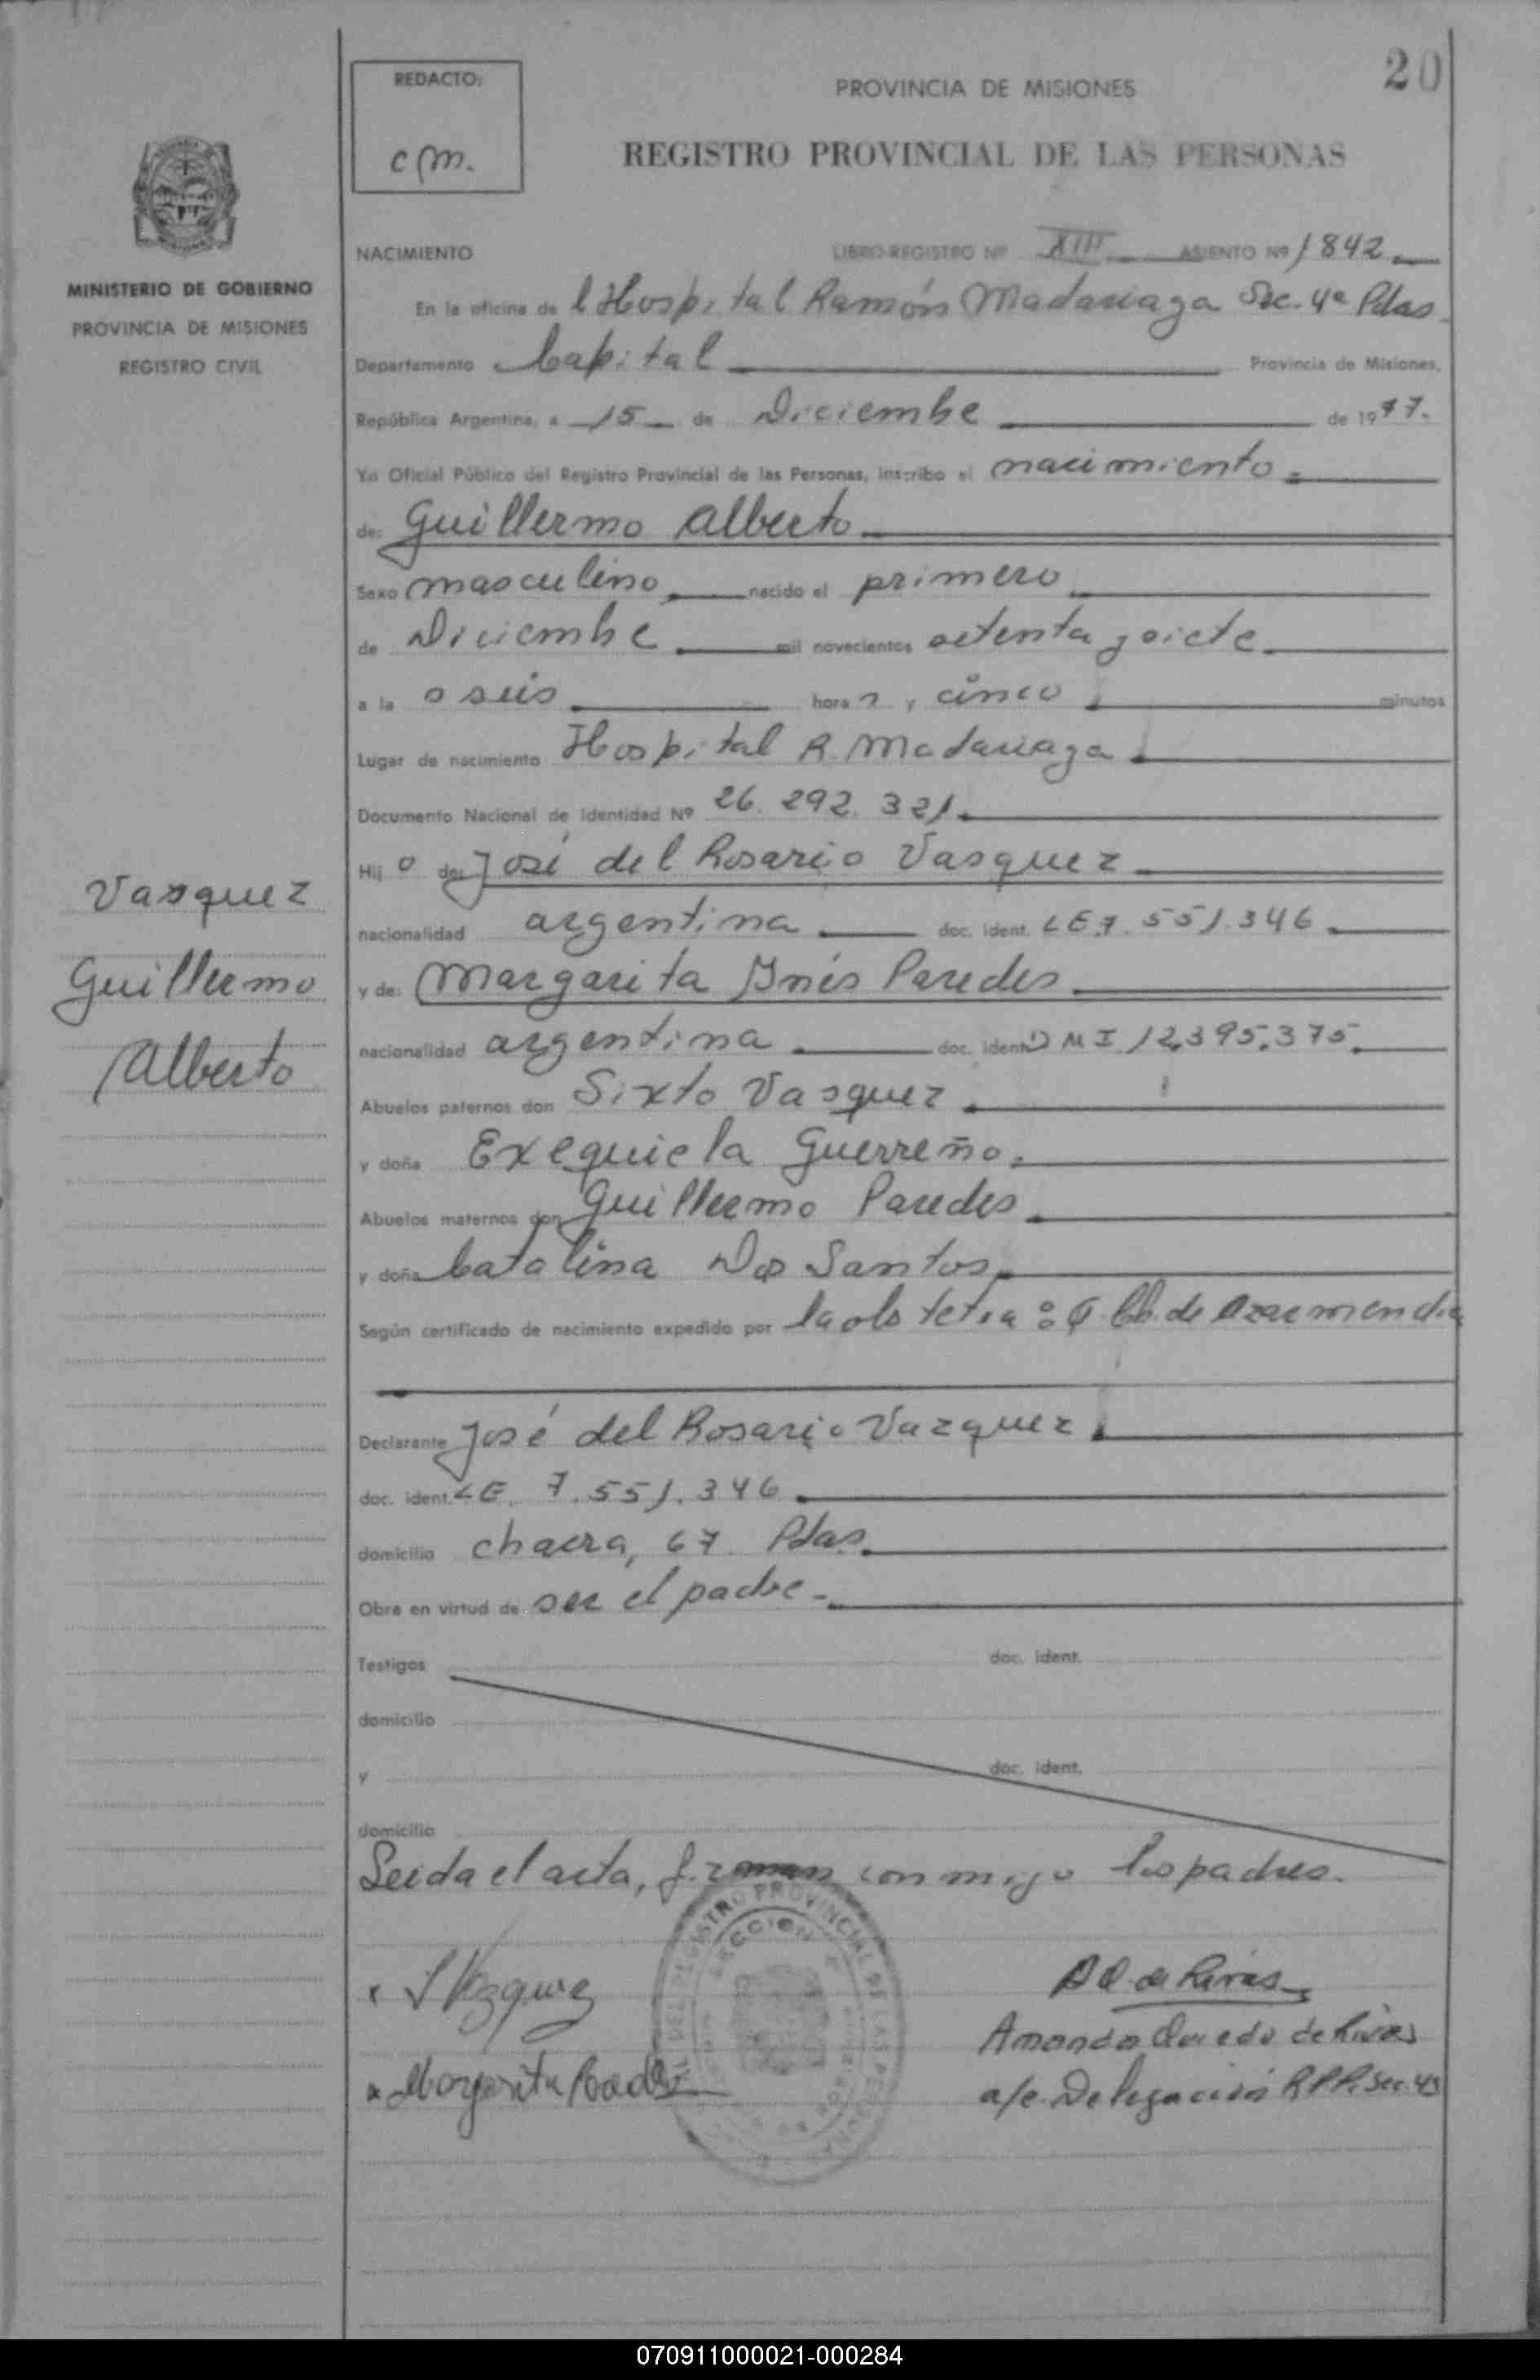 20
REDACTO:
cm.
PROVINCIA DE MISIONES
REGISTRO PROVINCIAL DE LAS PERSONAS
MINISTERIO DE GOBIERNO
PROVINCIA DE MISIONES
REGISTRO CIVIL
NACIMIENTO LIBRO-REGISTRO Nº XIII ASIENTO Nº 1842
En la oficina de l Hospital Ramón Madariaga Sec. 4ª Pdas
Departamento Capital Provincia de Misiones,
República Argentina, a 15 de Diciembre de 1977.
Yo Oficial Público del Registro Provincial de las Personas, inscribo el nacimiento
de: Guillermo Alberto
Sexo masculino nacido el primero
de Diciembre mil novecientos setenta y siete
a la s seis hora s y cinco minutos
Lugar de nacimiento Hospital R. Madariaga
Documento Nacional de Identidad Nº 26.292.321
Hij o de: José del Rosario Vasquez
nacionalidad argentina doc. ident. LE 7.551.346
y de: Margarita Inés Paredes
nacionalidad argentina doc. ident. DMI 12.395.375
Abuelos paternos don Sixto Vasquez
y doña Exequiela Guerreño
Abuelos maternos don Guillermo Paredes
y doña Catalina Dos Santos
Según certificado de nacimiento expedido por la obstetra: de
Declarante José del Rosario Vazquez
doc. ident. LE. 7.551.346
domicilio chacra, 67. Pdas.
Obra en virtud de ser el padre.
Testigos doc. ident.
domicilio
y doc. ident.
domicilio
Leida el acta, firman con migo los padres.
Vasquez
Guillermo
Alberto
Vazquez
Margarita
de Rivas
Amanda de Rivas
a/c. Delegación R.P.P. Sec. 4ª
070911000021-000284